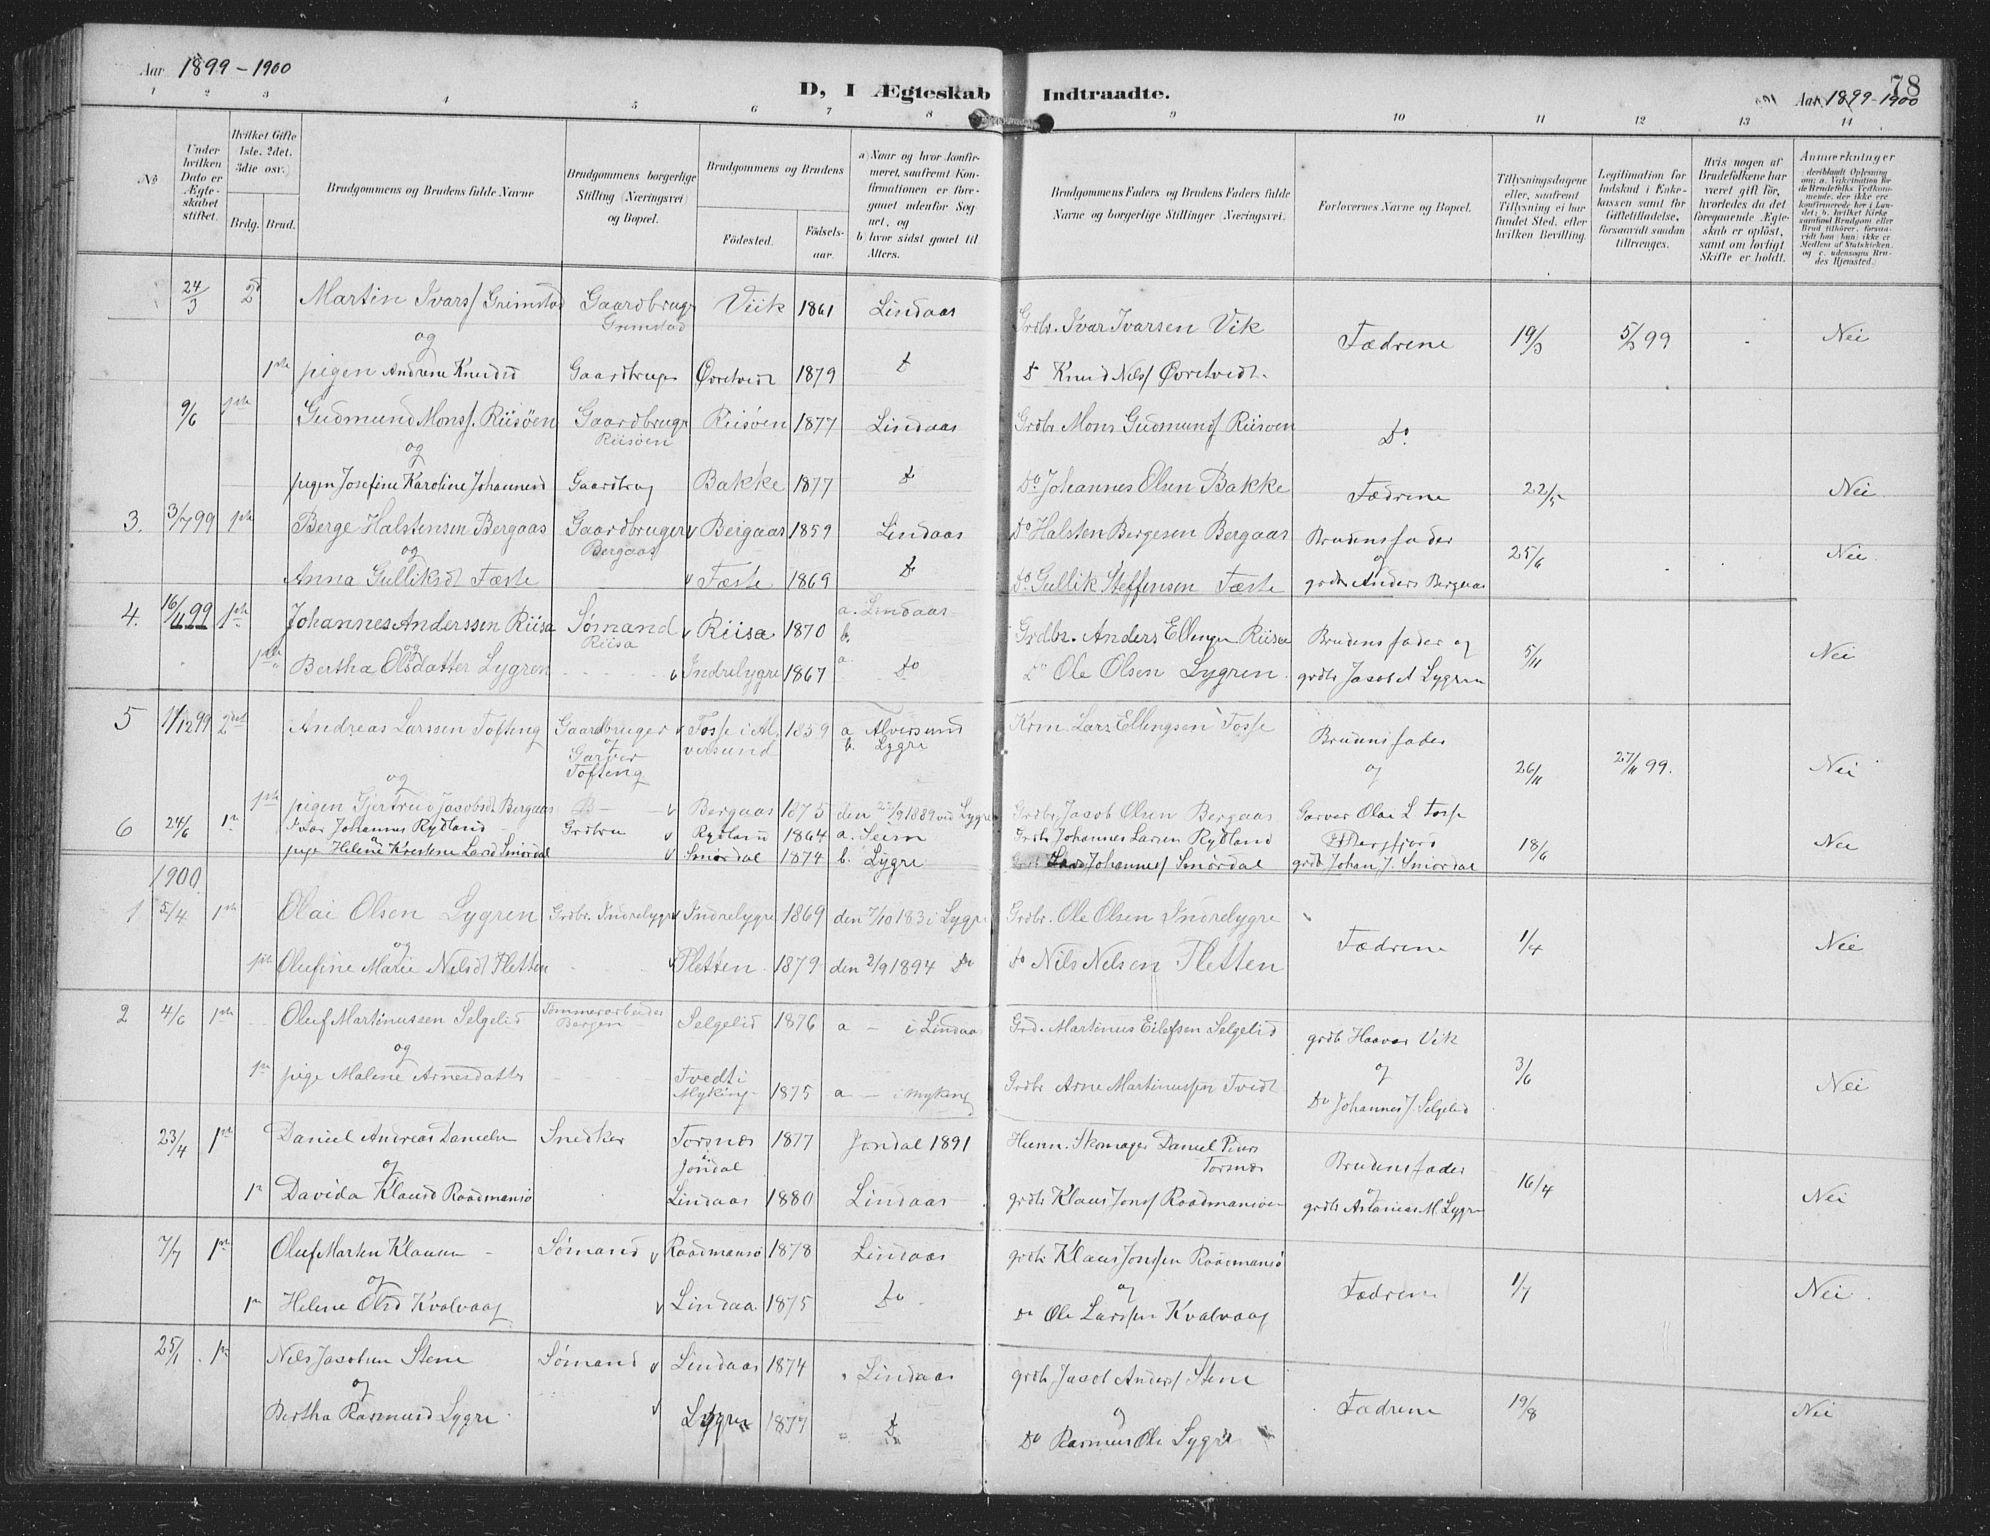 Aar 1899-1900
D, I Ægteskab Indtraadte.
Aar 1899-1900
78
1 2 3 4 5 6 7 8 9 10 11 12 13 14
No
Under hvilken Dato er Ægteskabet stiftet.
Hvilket Gifte 1ste, 2det, 3die osv.)
Brdg. Brud.
Brudgommens og Brudens fulde Navne
Brudgommens borgerlige Stilling (Næringsvei) og Bopæl.
Brudgommens og Brudens
Fødested. Fødselsaar.
a) Naar og hvor konfirmeret, saafremt Konfirmationen er foregaaet udenfor Sognet, og
b) hvor sidst gaaet til Alters.
Brudgommens Faders og Brudens Faders fulde Navne og borgerlige Stillinger (Næringsvei.
Forlovernes Navne og Bopæl.
Tillysningsdagene eller, saafremt Tillysning ei har fundet Sted, efter hvilken Bevilling.
Legitimation for Indskud i Enkekassen samt for Giftetilladelse, forsaavidt saadan tiltrænges.
Hvis nogen af Brudefolkene har været gift før, hvorledes da det foregaaende Ægteskab er opløst, samt om lovligt Skifte er holdt.
Anmærkninger
24/3 2d Martin Ivars/ Grimstad Gaardbruger Grimstad Viik 1861 Lindaas Grdbr. Ivar Ivarsen Vik Fædrene 19/3 5/3 99 Nei
og
1ste pigen Andrene Knudsd Gaardbruger Øvretvedt 1879 Do Do Knud Nils/ Øvretvedt.
9/6 1ste Gudmund Mons/. Riisöen Gaardbruger Riisöen Riisöen 1877 Lindaas Grdbr Mons Gudmunds/ Riisöen Do.
og
pigen Josefine Karoline Johannesd Gaardbrug Bakke 1877 Do Do Johannes Olsen Bakke Fædrene 22/5 Nei
3. 3/7 99 1ste Berge Halstensen Bergaas Gaardbruger Bergaas Bergaas 1859 Lindaas Do Halsten Bergesen Bergaas Brudens fader 25/6 Nei.
og
Anna Gulliksdt Fæste Fæste 1869 Do Do Gullik Steffensen Fæste og grdbr Anders Bergaas
4. 16/11 99 1ste Johannes Anderssen Riisa Sømand Riisa Riisa 1870 a. Lindaas b. Grdbr. Anders Ellingsen Riisa Brudens fader og 5/11 Nei
og
1ste Bertha Olsdatter Lygren Indrelygre 1867 a. Do Do Ole Olsen Lygren. grdbr Jacob A Lygren
5 11/12 99 2det Andreas Larssen Tofteng Gaardbruger og Garver Tofteng Fosse i Alversund 1859 a Alversund b. Lygre Krm Lars Ellingsen Fosse Brudens fader og 26/11 27/11 99. Nei
og
1ste pigen Gjertrud Jacobsdt Bergaas Bergaas 1875 den 22/9 1889 ved Lygre Grdbr. Jacob Olsen Bergaas Garver Olai L Fosse
6 24/6 1ste Ivar Johannes Rydland Grdbru Rydland 1864 a. Seim Grdbr Johannes Larsen Rydland 18/6 Nei
og
pige Helene Kristene Larsd Smørdal Smørdal 1874 b. Lygre Lars Johannes/ Smørdal grdb Johan J. Smørdal
1900.
1 5/4 1ste Olai Olsen Lygren Grdbr. Indrelygre Indrelygre 1869 den 7/10 183 i Lygre Grdbr. Ole Olsen Indrelygre Fædrene 1/4 Nei
og
1ste Olufine Marie Nilsdt Fletten Fletten. 1879 den 2/9 1894 Do Do Nils Nelsen Fletten
2 4/6 1ste Oluf Martinussen Selgelid Tømmerarbeider Bergen Selgelid 1876 a - i Lindaas Grd. Martinus Eilefsen Selgelid grdb Haavar Vik 3/6 Nei
og
1ste pige Malene Arnesdatter Tvedt i Myking 1875 a - i Myking Grdbr Arne Martinussen Tvedt og Do Johannes J. Selgelid
23/4 1ste Daniel Andreas Danieln Snedker Torsnæs i Jondal 1877 Jondal 1891 Husm. Skomager Daniel Torsnæs Brudens fader 16/4 Nei
og
1ste Davida Klausd Raadmansö Lindaas 1880 Lindaas grdb Klaus Jons/ Raadmansöen og grdb M. Lygre
7/7 1ste Oluf Marten Klausen Sømand Raadmansö 1878 Lindaas grdb Klaus Jonssen Raadmansö Fædrene 1/7 Nei.
og
1ste Helene Olsd Kvalvaag Lindaas 1875 Do og Do Ole Larssen Kvalvaag
25/1 1ste Nils Jacobsen Stene Sømand Lindaas 1874 Lindaas grdb Jacob Anders/ Stene Fædrene 19/8 Nei
og
Bertha Rasmusd Lygre Lygre 1877 Do og Do Rasmus Ole Lygre